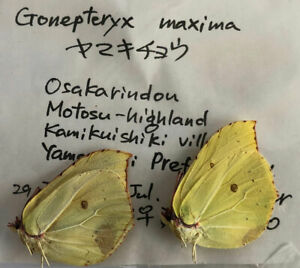 Gonepteryx maxima
ヤマキチョウ
Osakarindou
Motosu-highland
Kamikuishiki vill
Yama Pref
29 Jul. er
♀ o